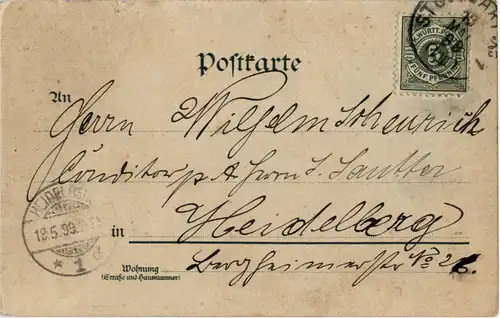 STUTTGART
K. WÜRTT. POST
5
FÜNF PFENNIG
Postkarte
An
Herrn Wilhelm Scheurich
Conditor p. A. Herrn S. Sautter
HEIDELBERG
18.5.99.
* 1
in
Heidelberg
Bergheimerstr No 26.
Wohnung
(Straße und Hausnummer)